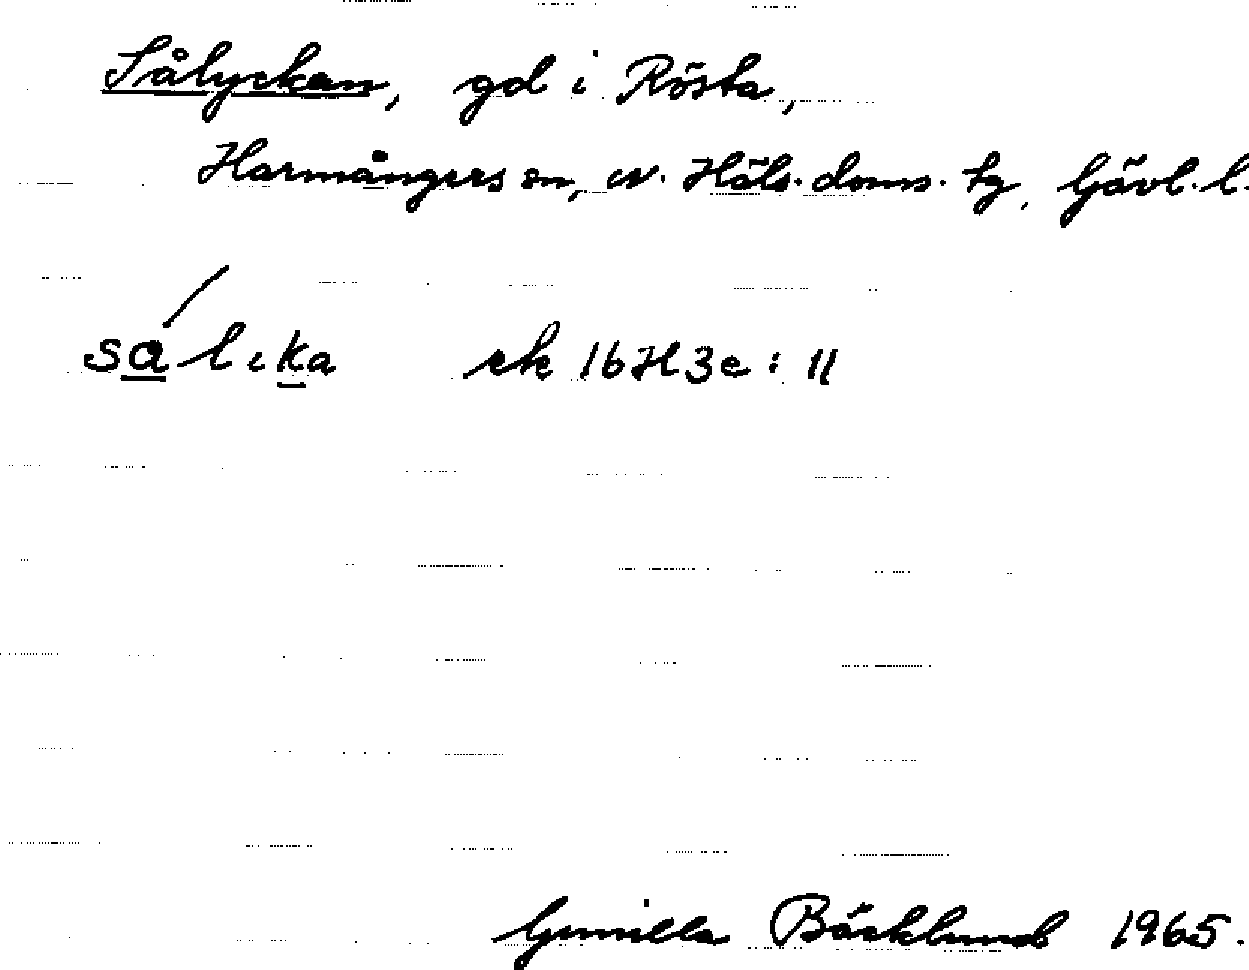 Sålyckan, gd i Rösta,
Harmångers sn, N. Häls. doms. tg, Gävl. l.
sålika ek 16H3e: 11
Gunilla Bäcklund 1965.